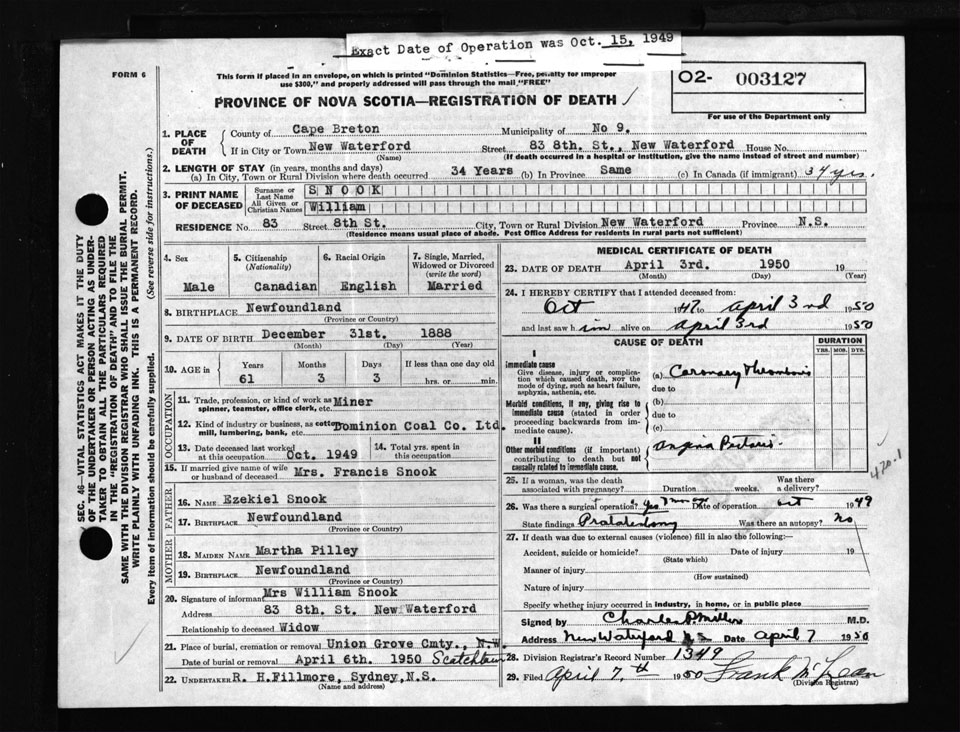 Exact Date of Operation was Oct. 15, 1949
FORM 6
This form if placed in an envelope, on which is printed "Dominion Statistics—Free, penalty for improper
use $300," and properly addressed will pass through the mail "FREE"
O2- 003127
For use of the Department only
PROVINCE OF NOVA SCOTIA—REGISTRATION OF DEATH
1. PLACE OF DEATH
County of Cape Breton Municipality of No 9.
If in City or Town New Waterford Street 83 8th. St., New Waterford House No.
(Name) (If death occurred in a hospital or institution, give the name instead of street and number)
2. LENGTH OF STAY (in years, months and days)
(a) In City, Town or Rural Division where death occurred 34 Years (b) In Province Same (c) In Canada (if immigrant) 34 yrs.
3. PRINT NAME OF DECEASED
Surname or Last Name SNOOK
All Given or Christian Names William
RESIDENCE No. 83 Street 8th St. City, Town or Rural Division New Waterford Province N.S.
(Residence means usual place of abode. Post Office Address for residents in rural parts not sufficient)
4. Sex Male
5. Citizenship (Nationality) Canadian
6. Racial Origin English
7. Single, Married, Widowed or Divorced (write the word) Married
8. BIRTHPLACE Newfoundland
(Province or Country)
9. DATE OF BIRTH December 31st. 1888
(Month) (Day) (Year)
10. AGE in Years Months Days If less than one day old
61 3 3 hrs. or min.
OCCUPATION
11. Trade, profession, or kind of work as spinner, teamster, office clerk, etc. Miner
12. Kind of industry or business, as cotton mill, lumbering, bank, etc. Dominion Coal Co. Ltd.
13. Date deceased last worked at this occupation Oct. 1949
14. Total yrs. spent in this occupation
15. If married give name of wife or husband of deceased Mrs. Francis Snook
FATHER
16. NAME Ezekiel Snook
17. BIRTHPLACE Newfoundland
(Province or Country)
MOTHER
18. MAIDEN NAME Martha Pilley
19. BIRTHPLACE Newfoundland
(Province or Country)
20. Signature of informant Mrs William Snook
Address 83 8th. St. New Waterford
Relationship to deceased Widow
21. Place of burial, cremation or removal Union Grove Cmty., N.W.
Date of burial or removal April 6th. 1950
22. UNDERTAKER R. H.Fillmore, Sydney,N.S.
(Name and address)
MEDICAL CERTIFICATE OF DEATH
23. DATE OF DEATH April 3rd. 1950 19
(Month) (Day) (Year)
24. I HEREBY CERTIFY that I attended deceased from:
Oct 1947 to April 3rd 1950
and last saw him alive on April 3rd 1950
CAUSE OF DEATH
DURATION
YRS. MOS. DYS.
I
Immediate cause
Give disease, injury or complication which caused death, NOT the mode of dying, such as heart failure, asphyxia, asthenia, etc.
(a) Coronary Thrombosis
due to
Morbid conditions, if any, giving rise to immediate cause (stated in order proceeding backwards from immediate cause).
(b)
due to
(c)
II
Other morbid conditions (if important) contributing to death but not causally related to immediate cause.
Angina Pectoris
420.1
25. If a woman, was the death associated with pregnancy? Duration weeks. Was there a delivery?
26. Was there a surgical operation? yes Date of operation Oct 1949
State findings Was there an autopsy? No
27. If death was due to external causes (violence) fill in also the following:—
Accident, suicide or homicide? Date of injury 19
(State which)
Manner of injury
(How sustained)
Nature of injury
Specify whether injury occurred in industry, in home, or in public place
Signed by Charles P. Miller M.D.
Address New Waterford N.S. Date April 7 1950
28. Division Registrar's Record Number 1349
29. Filed April 7th 1950 Frank McLean
(Division Registrar)
SEC. 46—VITAL STATISTICS ACT MAKES IT THE DUTY
OF THE UNDERTAKER OR PERSON ACTING AS UNDER-
TAKER TO OBTAIN ALL THE PARTICULARS REQUIRED
IN THE "REGISTRATION OF DEATH" AND TO FILE THE
SAME WITH THE DIVISION REGISTRAR WHO SHALL ISSUE THE BURIAL PERMIT.
WRITE PLAINLY WITH UNFADING INK. THIS IS A PERMANENT RECORD.
Every item of information should be carefully supplied. (See reverse side for instructions.)